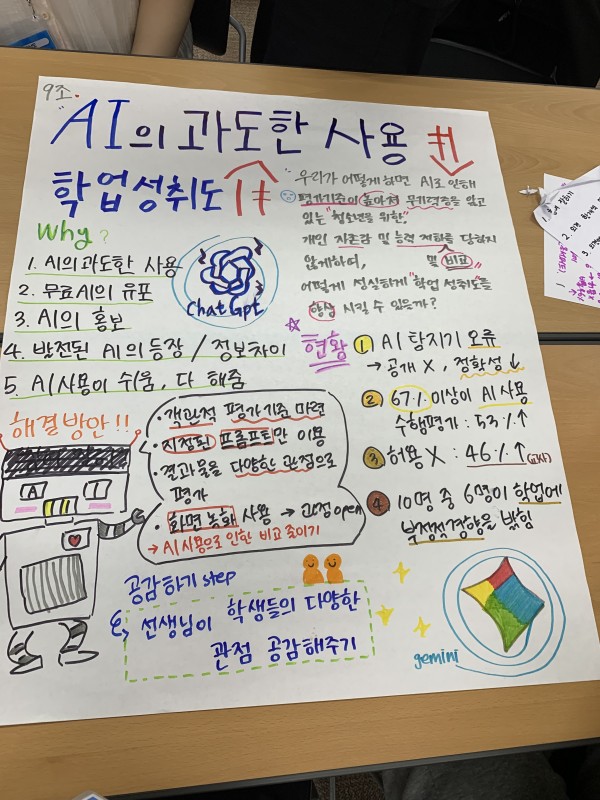 9조.
"AI의 과도한 사용
학업성취도
우리가 어떻게 하면 AI로 인해
평가기준이 높아져 무기력증을 앓고
있는 "청소년을 위한"
개인 자존감 및 능력 저하를 당하지
않게하여, 및 비교
어떻게 성실하게 "학업 성취도"를
향상 시킬 수 있는가?
Why?
1. AI의 과도한 사용
2. 무료 AI의 유포
3. AI의 홍보
4. 발전된 AI의 등장 / 정보차이
5. AI 사용이 쉬움, 다 해줌
ChatGpt
현황
1 AI 탐지기 오류
→ 공개 X, 정확성 ↓
2. 67% 이상이 AI 사용
수행평가 : 53% ↑
3 허용 X : 46% ↑
4 10명 중 6명이 학업에
부정적영향을 밝힘
해결방안!!
· 객관적 평가기준 마련
· 지정된 프롬프트만 이용
· 결과물을 다양한 관점으로
평가
· 화면 녹화 사용 → 과정 open
→ AI 사용으로 인한 비교 줄이기
AI
공감하기 step
선생님이 학생들의 다양한
관점 공감해주기
gemini